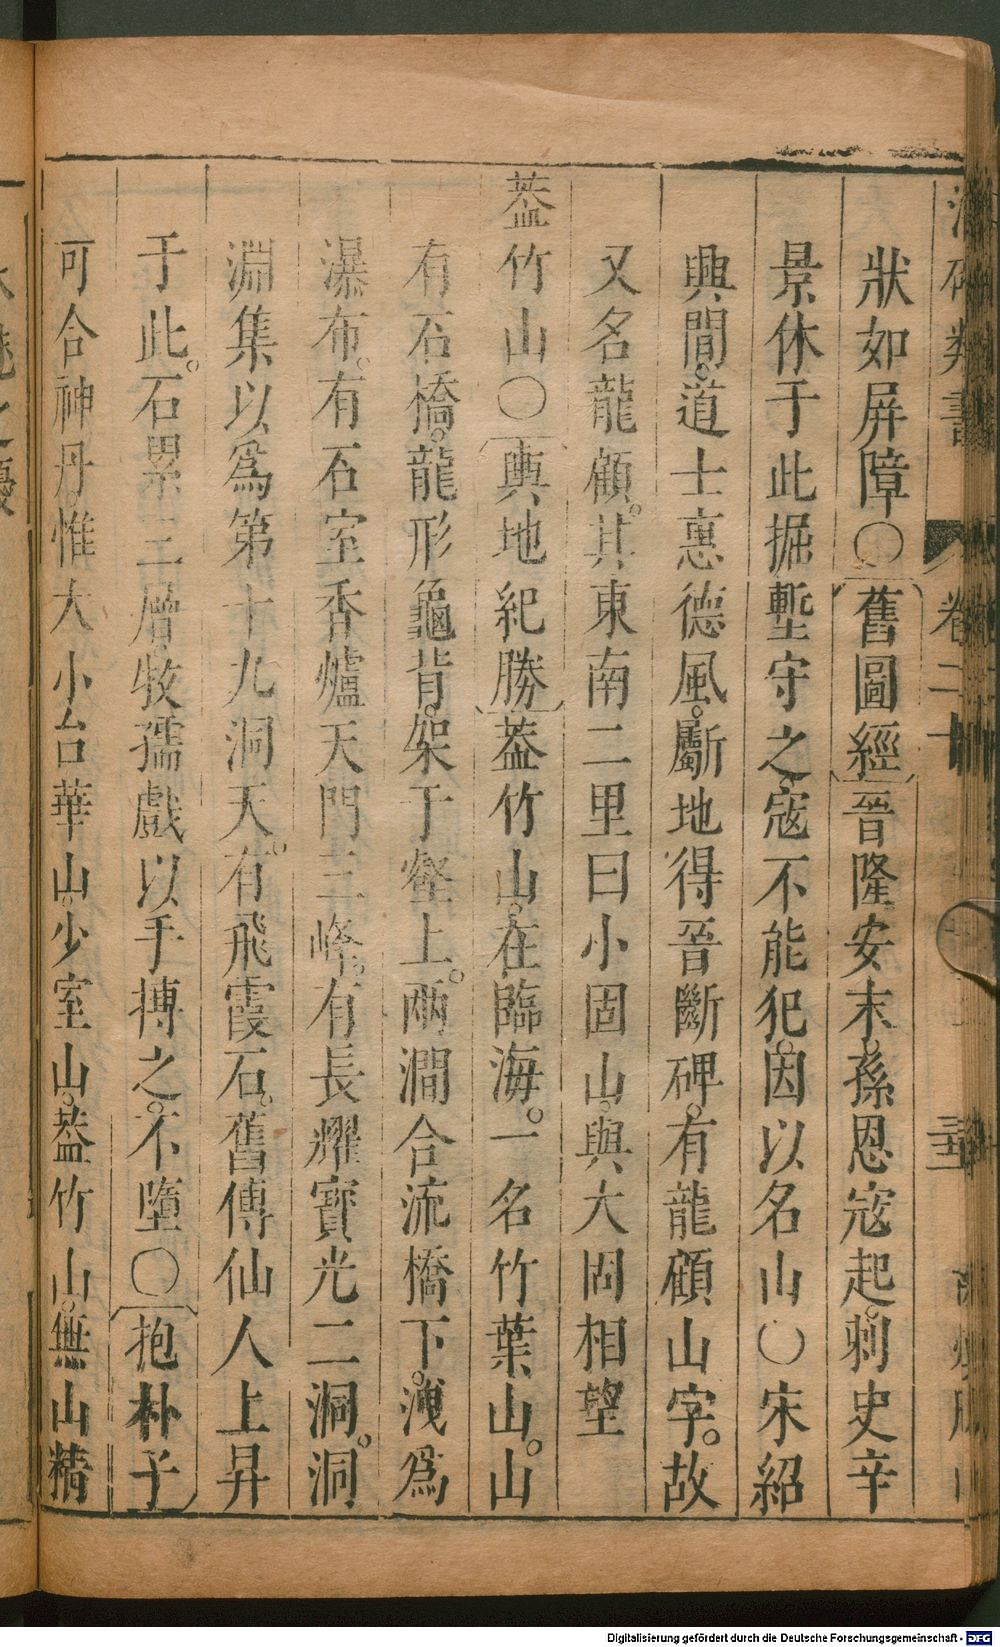 卷二十
狀如屏障〇舊圖經晉隆安末孫恩寇起刺史辛
景休于此掘塹守之寇不能犯因以名山〇宋紹
興間道士惠德風斸地得晉斷碑有龍顧山字故
又名龍顧其東南二里曰小固山與大固相望
葢竹山〇輿地紀勝葢竹山在臨海一名竹葉山山
有石橋龍形龜背架于壑上兩澗合流橋下洩爲
瀑布有石室香爐天門三峰有長耀寶光二洞洞
淵集以爲第十九洞天有飛霞石舊傳仙人上昇
于此石累三層牧孺戲以手搏之不墮〇抱朴子
可合神丹惟大小台華山少室山葢竹山無山精
Digitalisierung gefördert durch die Deutsche Forschungsgemeinschaft - DFG